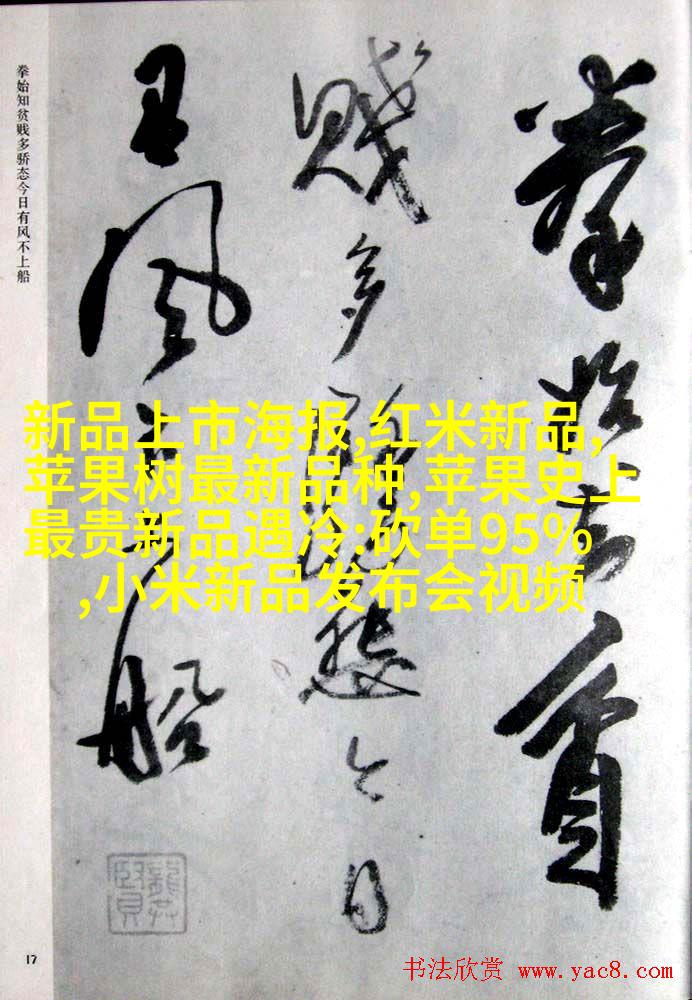 拳始知貧
賤多驕態今日
有風不上船
拳始知贫贱多骄态今日有风不上船
新品上市海报,红米新品,
苹果树最新品种,苹果史上
最贵新品遇冷:砍单95%
,小米新品发布会视频
17
书法欣赏 www.yac8.com